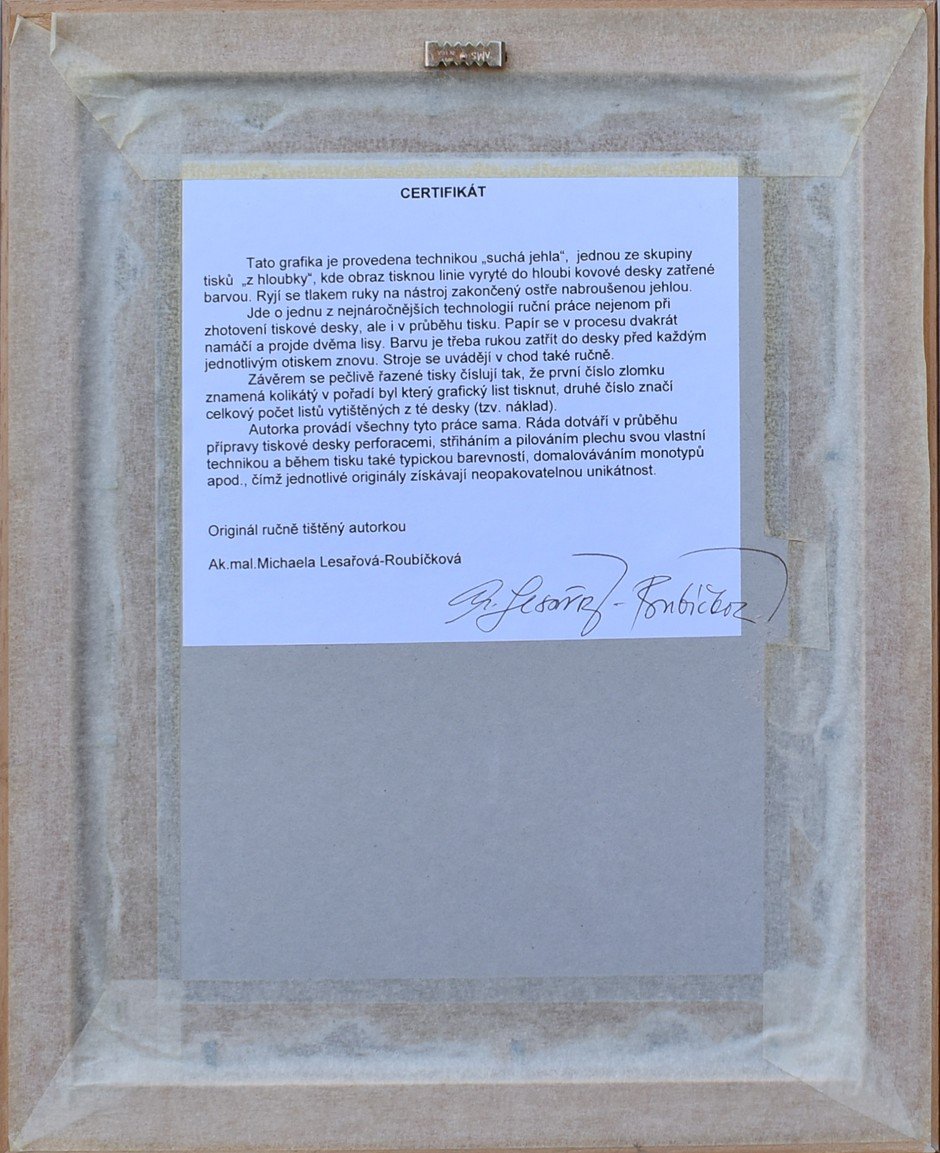 CERTIFIKÁT
Tato grafika je provedena technikou „suchá jehla“, jednou ze skupiny
tisků „z hloubky“, kde obraz tisknou linie vyryté do hloubi kovové desky zatřené
barvou. Ryjí se tlakem ruky na nástroj zakončený ostře nabroušenou jehlou.
Jde o jednu z nejnáročnějších technologií ruční práce nejenom při
zhotovení tiskové desky, ale i v průběhu tisku. Papír se v procesu dvakrát
namáčí a projde dvěma lisy. Barvu je třeba rukou zatřít do desky před každým
jednotlivým otiskem znovu. Stroje se uvádějí v chod také ručně.
Závěrem se pečlivě řazené tisky číslují tak, že první číslo zlomku
znamená kolikátý v pořadí byl který grafický list tisknut, druhé číslo značí
celkový počet listů vytištěných z té desky (tzv. náklad).
Autorka provádí všechny tyto práce sama. Ráda dotváří v průběhu
přípravy tiskové desky perforacemi, střiháním a pilováním plechu svou vlastní
technikou a během tisku také typickou barevností, domalováváním monotypů
apod., čímž jednotlivé originály získávají neopakovatelnou unikátnost.
Originál ručně tištěný autorkou
Ak.mal.Michaela Lesařová-Roubíčková